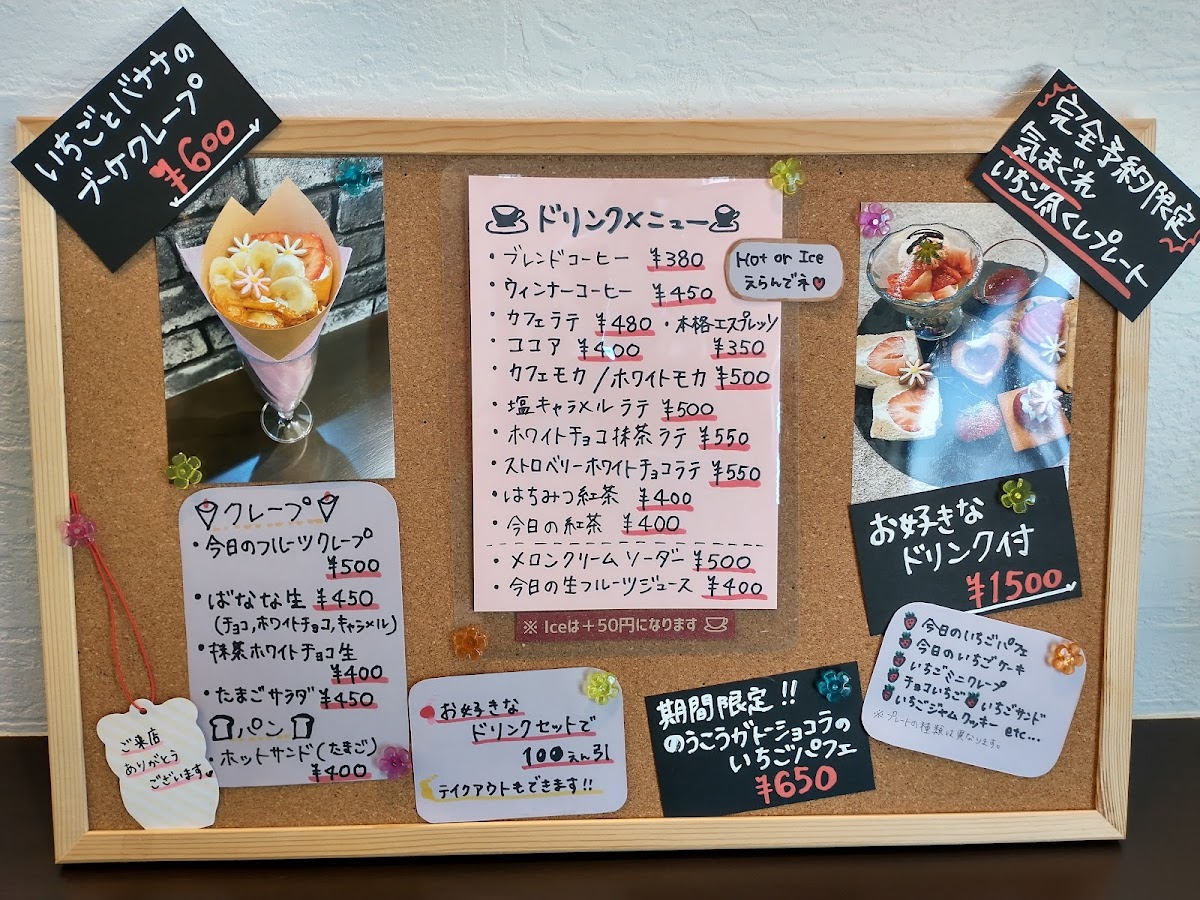 いちごとバナナの
ブーケクレープ
¥600
完全予約限定
気まぐれ
いちご尽くしプレート
ドリンクメニュー
・ブレンドコーヒー ¥380
Hot or Ice
えらんでネ
・ウィンナーコーヒー ¥450
・カフェラテ ¥480 ・本格エスプレッソ
・ココア ¥400 ¥350
・カフェモカ/ホワイトモカ ¥500
・塩キャラメルラテ ¥500
・ホワイトチョコ抹茶ラテ ¥550
・ストロベリーホワイトチョコラテ ¥550
・はちみつ紅茶 ¥400
・今日の紅茶 ¥400
・メロンクリームソーダー ¥500
・今日の生フルーツジュース ¥400
※ Iceは+50円になります
クレープ
・今日のフルーツクレープ
¥500
・ばなな生 ¥450
(チョコ,ホワイトチョコ,キャラメル)
・抹茶ホワイトチョコ生
¥400
・たまごサラダ ¥450
パン
・ホットサンド(たまご)
¥400
ご来店
ありがとう
ございます
お好きな
ドリンクセットで
100えん引
テイクアウトもできます!!
期間限定!!
のうこうガトーショコラの
いちごパフェ
¥650
お好きな
ドリンク付
¥1500
今日のいちごパフェ
今日のいちごケーキ
いちごミニクレープ
チョコいちご いちごサンド
いちごジャムクッキー
etc...
※プレートの種類は異なります。